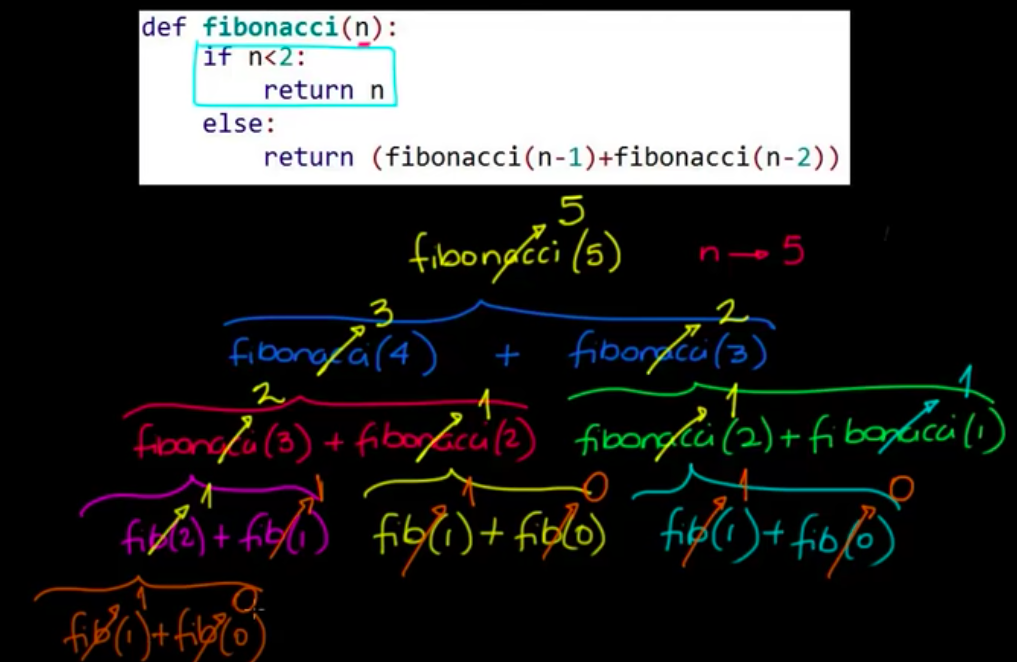 def fibonacci(n):
if n<2:
return n
else:
return (fibonacci(n-1)+fibonacci(n-2))
5
fibonacci(5) n → 5
3 2
fibonacci(4) + fibonacci(3)
2 1 1 1
fibonacci(3) + fibonacci(2) fibonacci(2) + fibonacci(1)
1 1 1 0 1 0
fib(2) + fib(1) fib(1) + fib(0) fib(1) + fib(0)
1 0
fib(1) + fib(0)